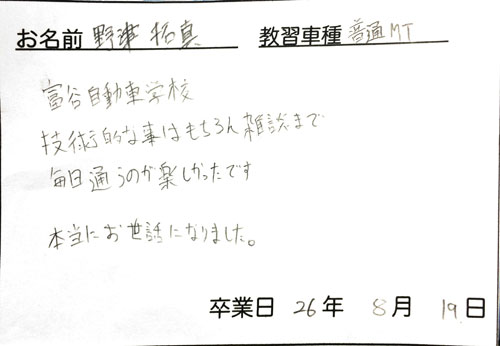 お名前 野津 拓真 教習車種 普通MT
富谷自動車学校
技術的な事はもちろん雑談まで
毎日通うのが楽しかったです
本当にお世話になりました。
卒業日 26年 8月 19日